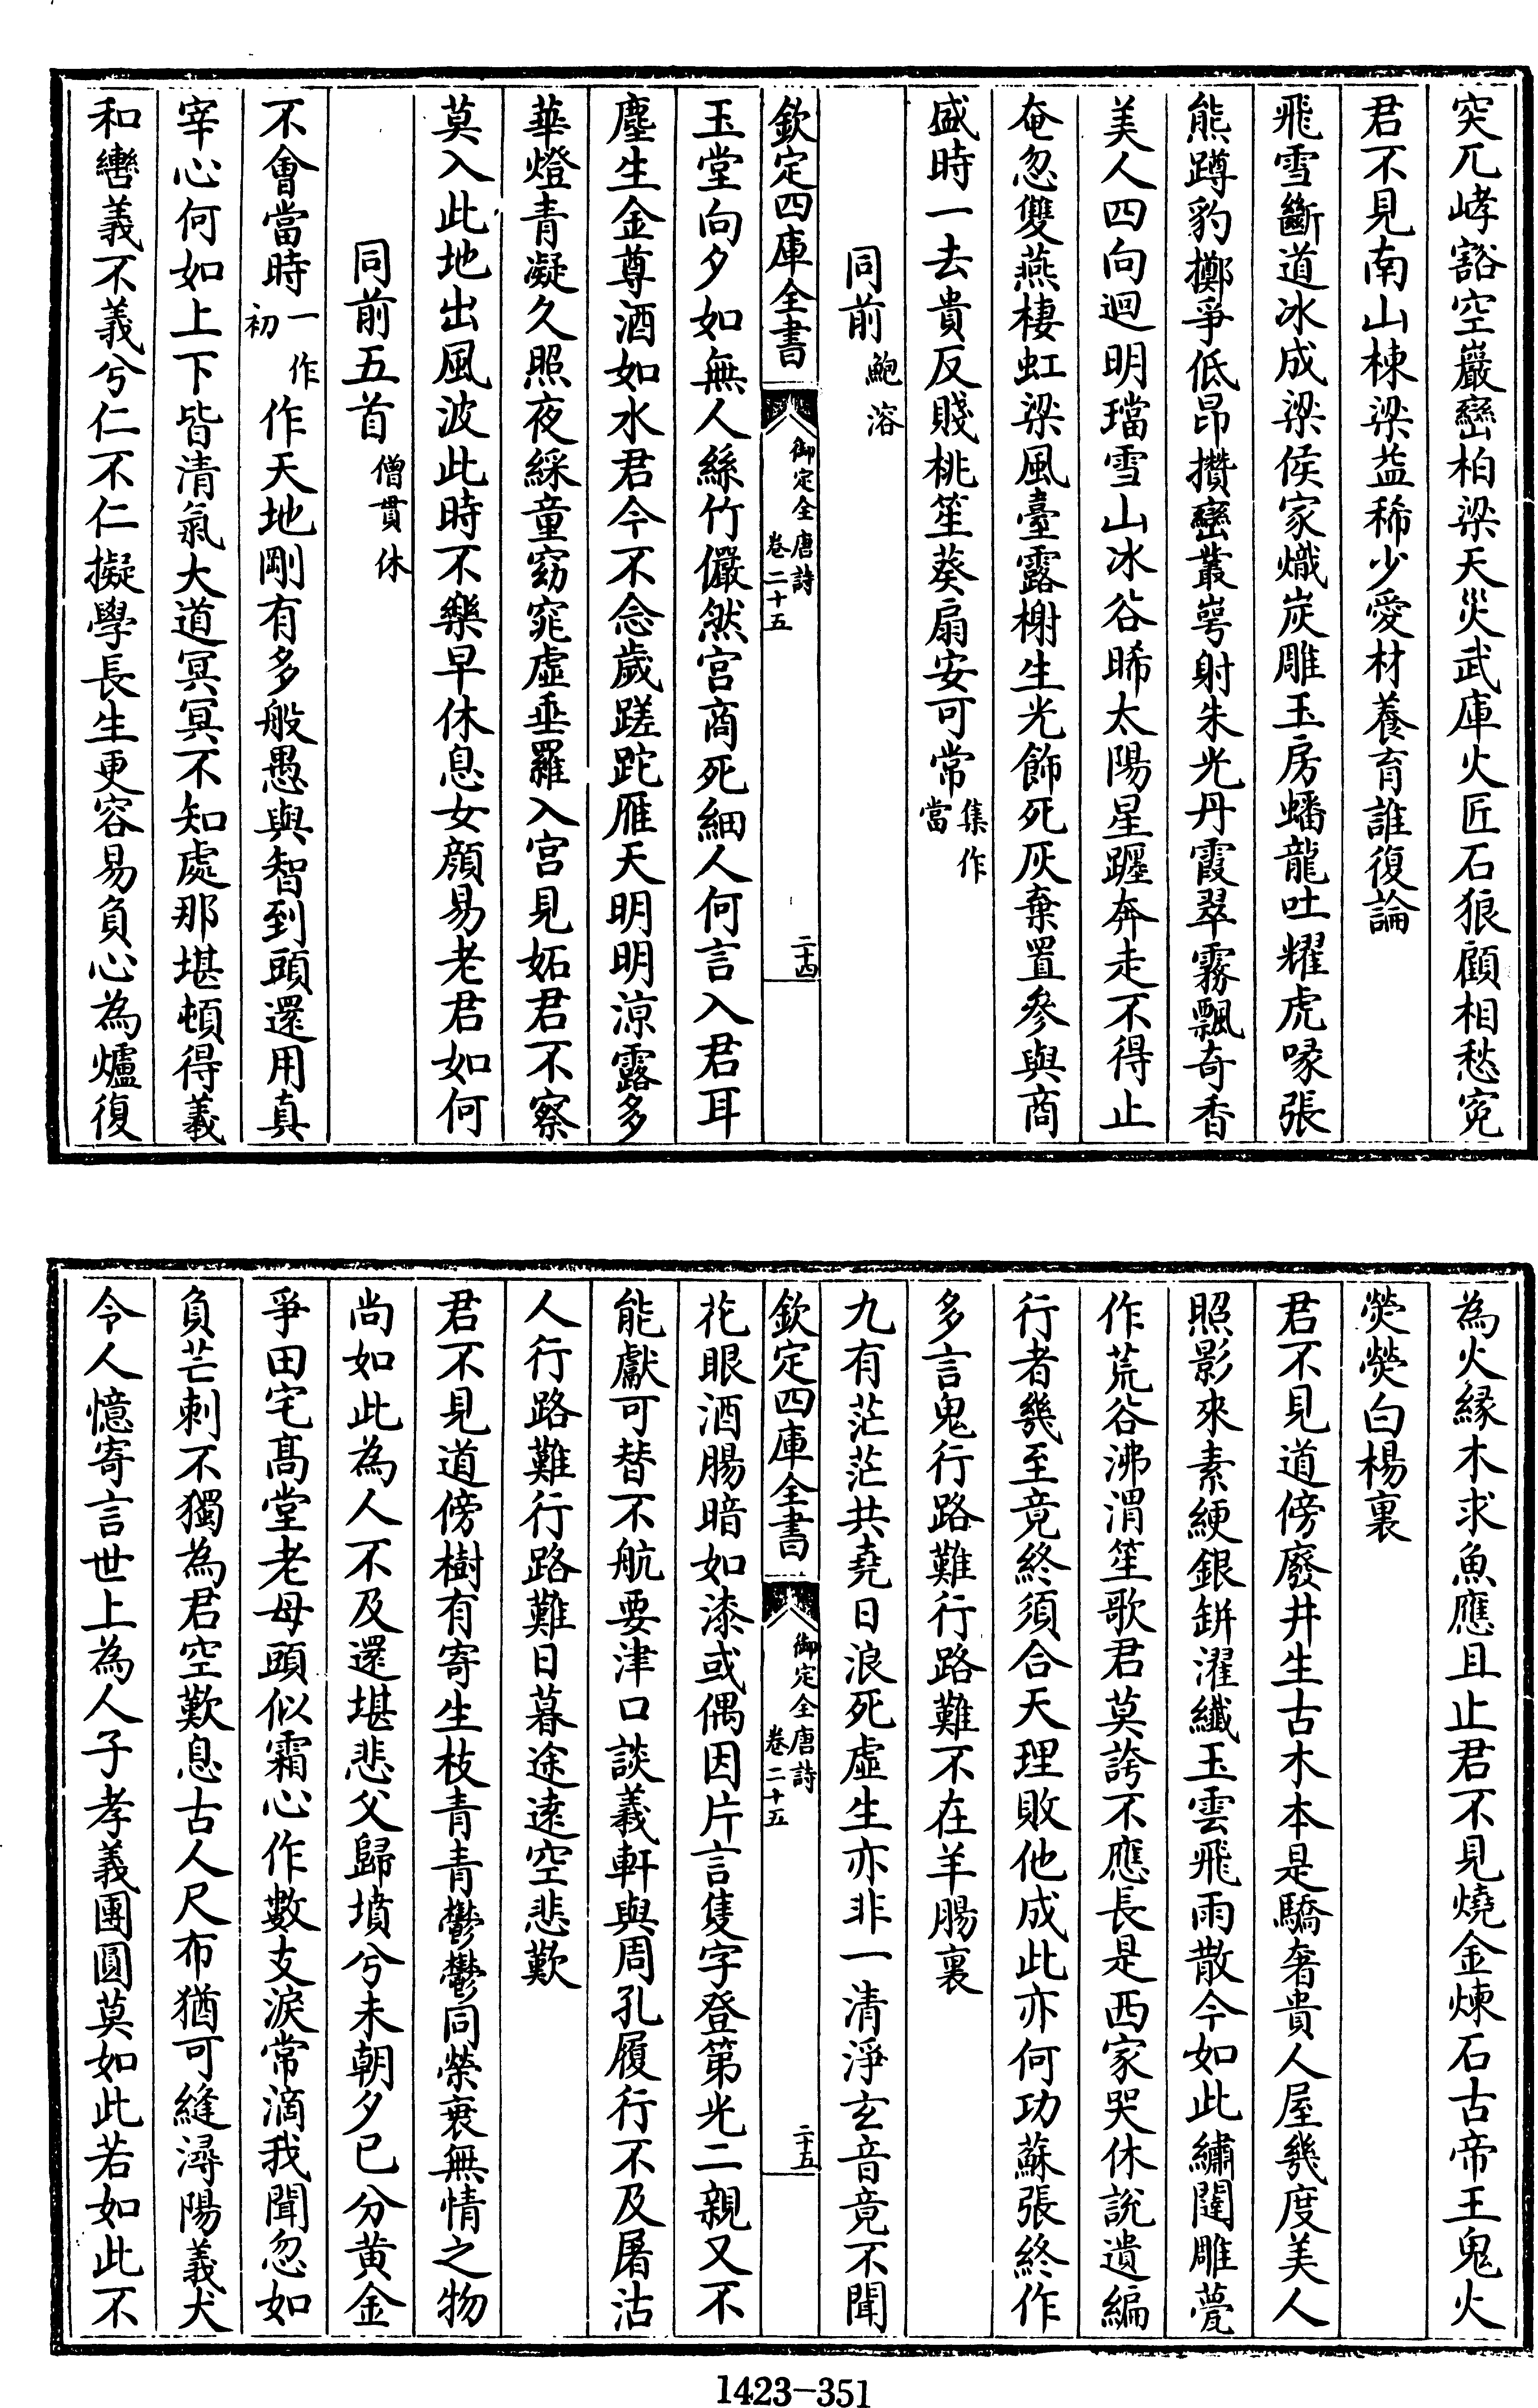 突兀崚豁空巖巒柏梁天災武庫火匠石狼顧相愁寃
君不見南山棟梁益稀少愛材養育誰復論
飛雪斷道冰成梁侯家熾炭雕玉房蟠龍吐耀虎喙張
熊蹲豹擲爭低昂攢巒叢崿射朱光丹霞翠霧飄奇香
美人四向迴明璫雪山冰谷晞太陽星躔奔走不得止
奄忽雙燕棲虹梁風臺露榭生光飾死灰棄置參與商
盛時一去貴反賤桃笙葵扇安可常集作當
同前鮑溶
欽定四庫全書 御定全唐詩卷二十五 二十四
玉堂向夕如無人絲竹儼然宮商死細人何言入君耳
塵生金尊酒如水君今不念歲蹉跎雁天明明涼露多
華燈青凝久照夜綵童窈窕虛垂羅入宮見妬君不察
莫入此地出風波此時不樂早休息女顏易老君如何
同前五首僧貫休
不會當時一作初作天地剛有多般愚與智到頭還用真
宰心何如上下皆清氣大道冥冥不知處那堪頓得羲
和轡義不義兮仁不仁擬學長生更容易負心為爐復
為火緣木求魚應且止君不見燒金煉石古帝王鬼火
熒熒白楊裏
君不見道傍廢井生古木本是驕奢貴人屋幾度美人
照影來素綆銀缾濯纖玉雲飛雨散今如此繡闥雕甍
作荒谷沸渭笙歌君莫誇不應長是西家哭休說遺編
行者幾至竟終須合天理敗他成此亦何功蘇張終作
多言鬼行路難行路難不在羊腸裏
九有茫茫共堯日浪死虛生亦非一清淨玄音竟不聞
欽定四庫全書 御定全唐詩卷二十五 二十五
花眼酒腸暗如漆或偶因片言隻字登第光二親又不
能獻可替不航要津口談羲軒與周孔履行不及屠沽
人行路難行路難日暮途遠空悲歎
君不見道傍樹有寄生枝青青鬱鬱同榮衰無情之物
尚如此為人不及還堪悲父歸墳兮未朝夕已分黃金
爭田宅高堂老母頭似霜心作數支淚常滴我聞忽如
負芒刺不獨為君空歎息古人尺布猶可縫潯陽義犬
令人憶寄言世上為人子孝義團圓莫如此若如此不
1423-351